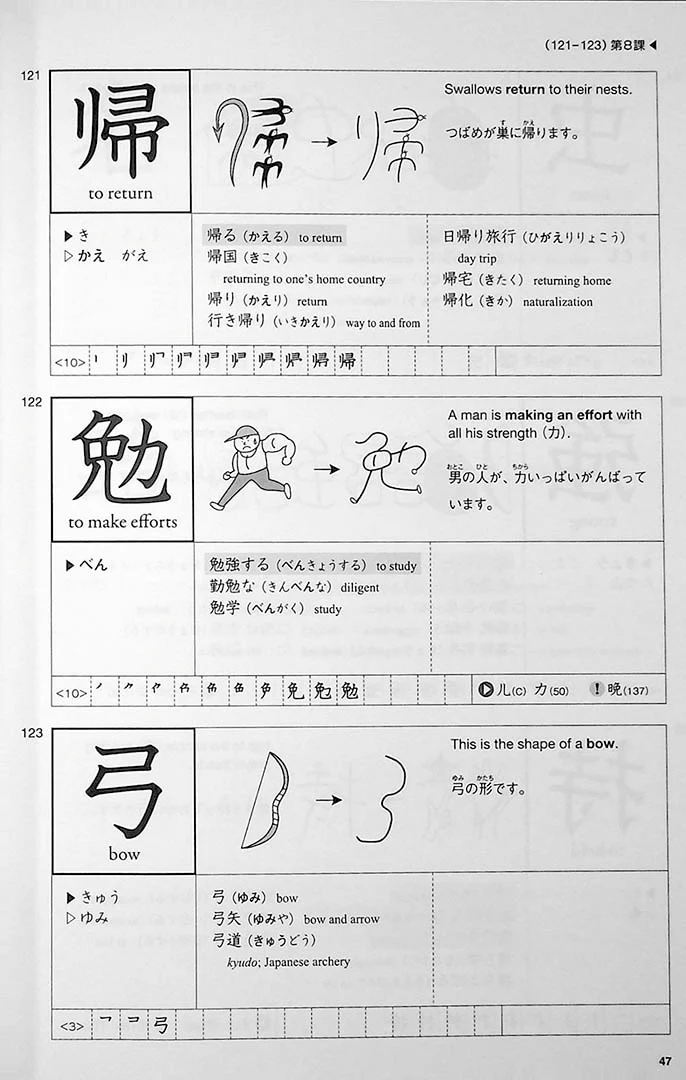 (121–123) 第8課◀
121
帰
to return
Swallows return to their nests.
つばめが巣に帰ります。
す かえ
▶き
▷かえ がえ
帰る（かえる） to return
帰国（きこく）
returning to one's home country
帰り（かえり） return
行き帰り（いきかえり） way to and from
日帰り旅行（ひがえりりょこう）
day trip
帰宅（きたく） returning home
帰化（きか） naturalization
<10>
帰
122
勉
to make efforts
A man is making an effort with
all his strength (力).
おとこ ひと ちから
男の人が、力いっぱいがんばって
います。
▶べん
勉強する（べんきょうする） to study
勤勉な（きんべんな） diligent
勉学（べんがく） study
<10>
勉
▶儿(C) 力(50) !晩(137)
123
弓
bow
This is the shape of a bow.
ゆみ かたち
弓の形です。
▶きゅう
▷ゆみ
弓（ゆみ） bow
弓矢（ゆみや） bow and arrow
弓道（きゅうどう）
kyudo; Japanese archery
<3>
弓
47